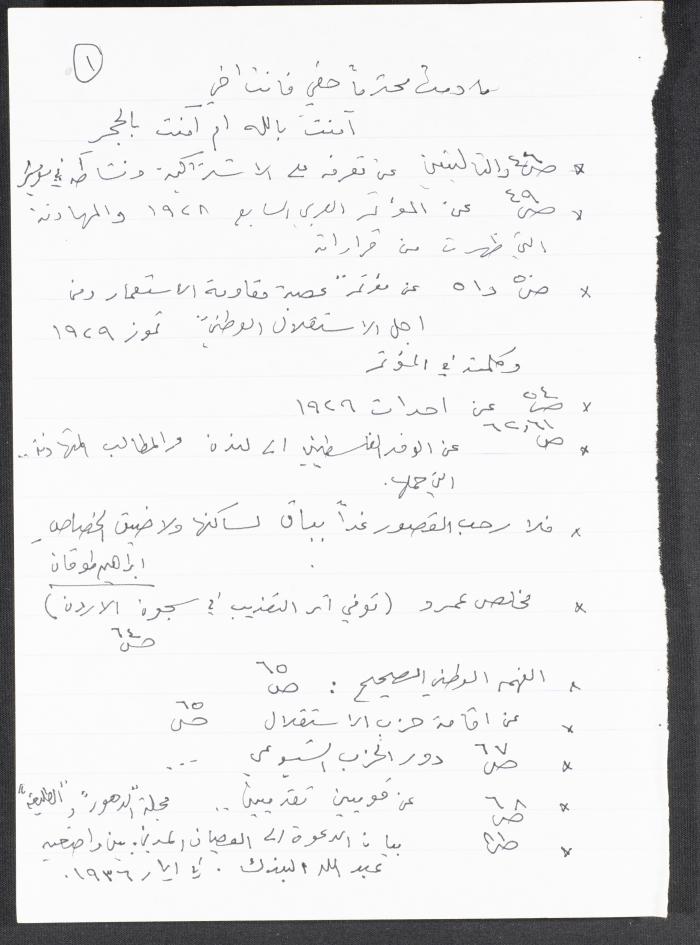 ١
ما دمت محترماً حقي فأنت أخي
آمنت بالله أم آمنت بالحجر
* ص٤٦ والتاليتين عن تعرفه على الاشتراكية ونشاطه في
* ص٤٩ عن المؤتمر العربي السابع ١٩٢٨ والمهادنة
التي ظهرت من قراراته
* ص٥٠ و٥١ عن مؤتمر "عصبة مقاومة الاستعمار ومن
اجل الاستقلال الوطني" تموز ١٩٢٩
وكلمته في المؤتمر
* ص٥٤ عن احداث ١٩٢٩
* ص٦١، ٦٢ عن الوفد الفلسطيني الى لندن والمطالب المتهادنة..
التي حملها.
* فلا رحب القصور غداً بباق لساكنها ولا ضيق الخصاص
ابراهيم طوقان
* مخلص عمرو (توفي اثر التعذيب في سجون الاردن)
ص٦٤
* الفهم الوطني الصحيح : ص٦٥
* عن اقامة حزب الاستقلال ص٦٥
* ص٦٧ دور الحزب الشيوعي ...
* ص٦٨ عن قوميين تقدميين .. مجلة "الدهور" و"الطليعة"
* بيان الدعوة الى العصيان المدني. بين واضعيه
عبد الله البندك. في ايار ١٩٣٦.